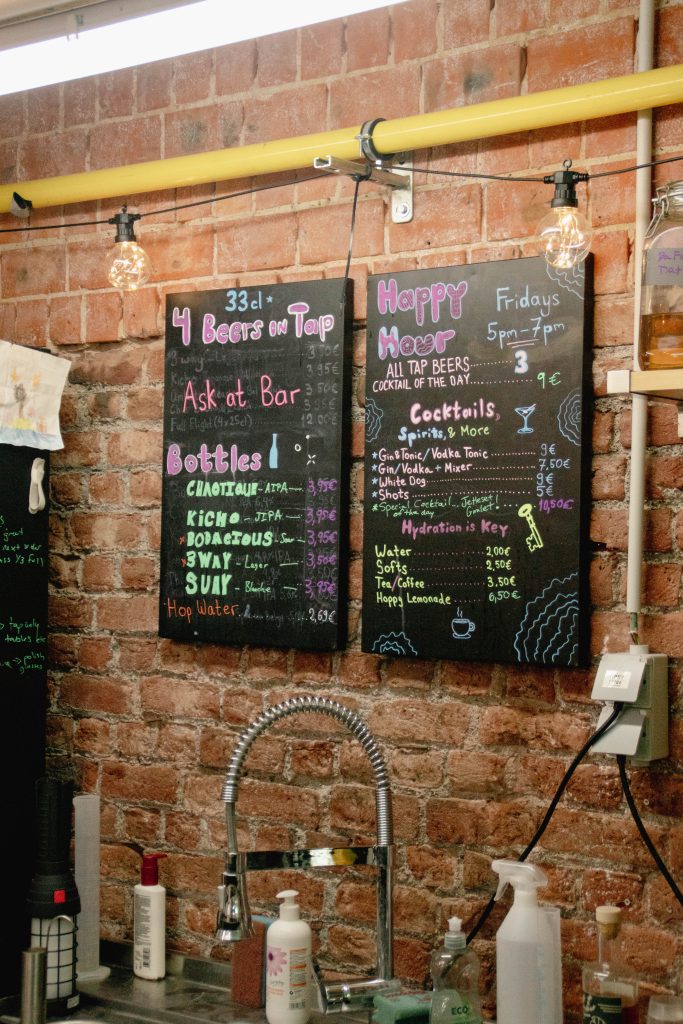 33cl *
4 Beers on Tap
3,50€
3.50€
Ask at Bar
3.50€
Full Flight (4x25cl) 12.00€
Bottles
CHAOTIQUE - AIPA 3,95€
KICHO - JIPA 3,95€
BODACIOUS - Sour 3,95€
3WAY - Lager 3,50€
SUAY - Blanche 3,75€
Hop Water 2,69€
Happy Hour
Fridays
5pm-7pm
ALL TAP BEERS 3
COCKTAIL OF THE DAY 9€
Cocktails,
Spirits, & More
*Gin&Tonic/Vodka Tonic 9€
*Gin/Vodka + Mixer 7,50€
*White Dog 9€
*Shots 5€
*Special Cocktail of the day 10,50€
Hydration is Key
Water 2,00€
Softs 2,50€
Tea/Coffee 3.50€
Happy Lemonade 6,50€
great
next
tap only
tables etc
polish
glasses
ECO